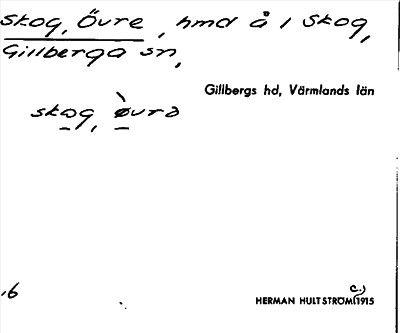 Skog, Övre, hmd å 1 Skog,
Gillberga sn,
Gillbergs hd, Värmlands län
skog, øvrə
16
HERMAN HULTSTRÖM (c.) 1915